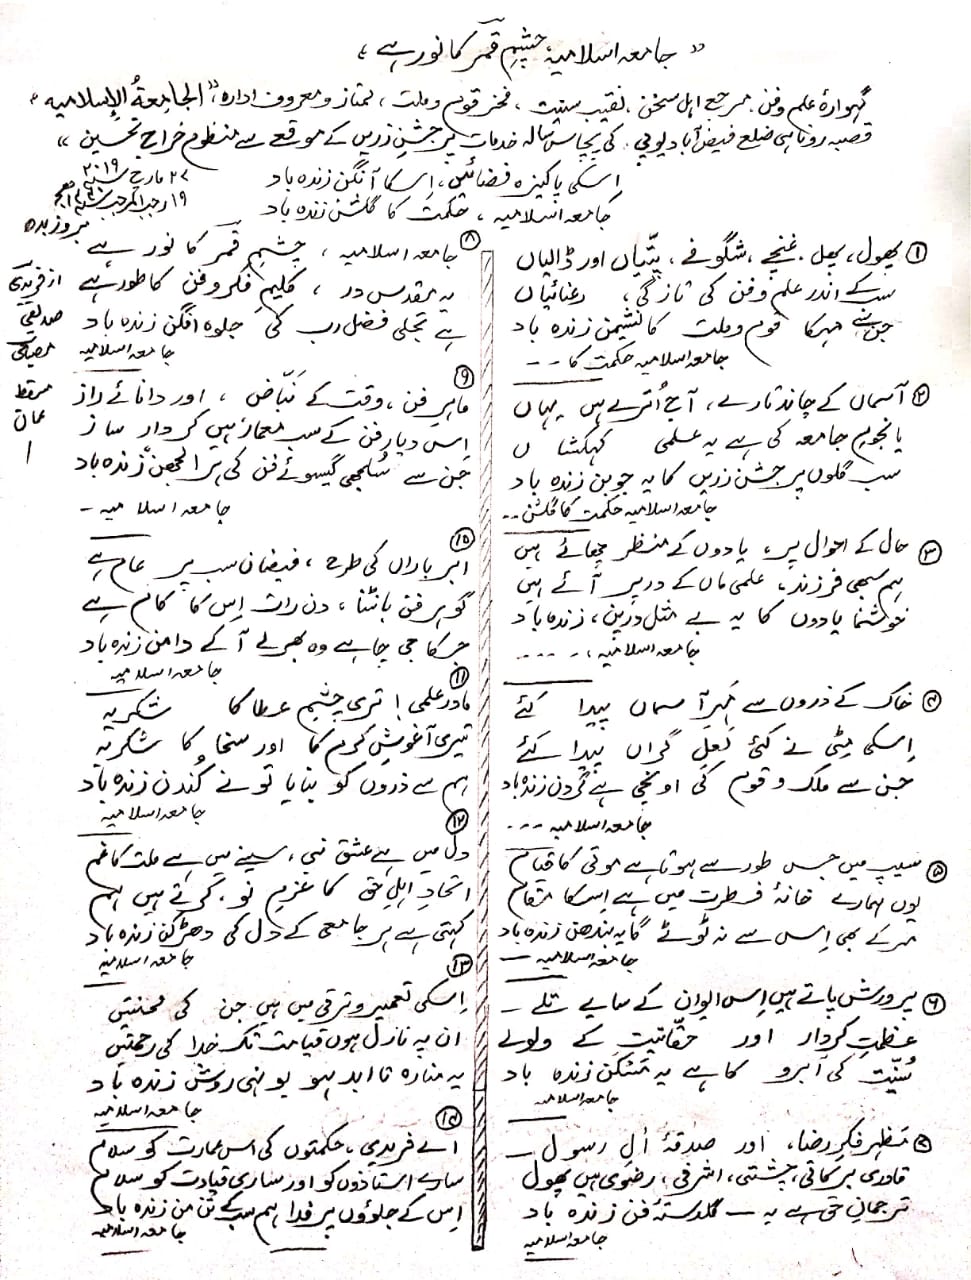 ”جامعہ اسلامیہ چشمِ قمر کا نور ہے“
گہوارۂ علم وفن، مرجع اہل سخن، نقیب سنیت، فخر قوم و ملت، ممتاز و معروف ادارہ، ”الجامعۃُ الإسلامیہ“
قصبہ روناہی ضلع فیض آباد یوپی کی پچاس سالہ خدمات پر جشنِ زریں کے موقع سے منظوم خراجِ تحسین“
۲۷ مارچ ۲۰۱۹
۱۹ رجب المرجب ۱۴۴۰ھ
بروز بدھ
از فریدی
صدیقی
مصباحی
مسقط
عمان
اسکی پاکیزہ فضائیں، اِسکا آنگن زندہ باد
جامعہ اسلامیہ، حکمت کا گلشن زندہ باد
① پھول، پھل، غنچے، شگوفے، پتّیاں اور ڈالیاں
سب کے اندر علم و فن کی تازگی، رعنائیاں
جن سے مہکا قوم و ملت کا نشیمن زندہ باد
جامعہ اسلامیہ حکمت کا ---
② آسماں کے چاند تارے، آج اُترے ہیں یہاں
یا نجومِ جامعہ کی ہے یہ علمی کہکشاں
سب گلوں پر جشن زریں کا یہ جوبن زندہ باد
جامعہ اسلامیہ حکمت کا گلشن --
③ حال کے احوال پر، یادوں کے منظر چھائے ہیں
ہم سبھی فرزند، علمی ماں کے در پر آئے ہیں
خوشنما یادوں کا یہ بے مثل درپن، زندہ باد
جامعہ اسلامیہ، -----
④ خاک کے ذروں سے مہر آسماں پیدا کئے
اِسکی مٹی نے کئی لعلِ گراں پیدا کئے
جن سے ملک و قوم کی اونچی ہے گردن زندہ باد
جامعہ اسلامیہ ---
⑤ سیپ میں جس طور سے ہوتا ہے موتی کا قیام
یوں ہمارے خانۂ فطرت میں ہے اِسکا مقام
مر کے بھی اِس سے نہ ٹوٹے گا یہ بندھن زندہ باد
جامعہ اسلامیہ —
⑥ پرورش پاتے ہیں اِس ایوان کے سایے تلے
عظمتِ کردار اور حقّانیت کے ولولے
سُنّیت کی آبرو کا ہے یہ مسکن زندہ باد
جامعہ اسلامیہ
⑦ مَظہرِ فکرِ رضا، اور صدقۂ آلِ رسول
قادری برکاتی، چشتی، اشرفی، رضوی ہیں پھول
ترجمانِ حق ہے یہ — گلدستۂ فن زندہ باد
جامعہ اسلامیہ
⑧ جامعہ اسلامیہ، چشمِ قمر کا نور ہے
یہ مقدس در، کلیمِ فکر و فن کا طور ہے
ہے تجلی فضل رب کی جلوہ افگن زندہ باد
جامعہ اسلامیہ
⑨ ماہرِ فن، وقت کے نَبّاض، اور دانائے راز
اِس دیارِ فن کے سب معمار ہیں کردار ساز
جن سے سُلجھی گیسوئے فن کی ہر الجھن زندہ باد
جامعہ اسلامیہ -
⑩ ابرِ باراں کی طرح، فیضان سب پر عام ہے
گوہرِ فن بانٹنا، دن رات اِس کا کام ہے
جس کا جی چاہے وہ بھر لے آ کے دامن زندہ باد
جامعہ اسلامیہ
⑪ مادرِ علمی! تری چشمِ عطا کا شکریہ
تیری آغوشِ کرم کا اور سخا کا شکریہ
ہم سے ذروں کو بنایا تو نے کُندن زندہ باد
جامعہ اسلامیہ
⑫ دل میں ہے عشقِ نبی، سینے میں ہے ملت کا غم
اتحادِ اہلِ حق کا عزمِ نو، کرتے ہیں ہم
کہتی ہے ہر جامعی کے دل کی دھڑکن زندہ باد
جامعہ اسلامیہ
⑬ اِسکی تعمیر و ترقی میں ہیں جن کی محنتیں
ان پہ نازل ہوں قیامت تک خدا کی رحمتیں
یہ منارہ تا ابد ہو یونہی روشن زندہ باد
جامعہ اسلامیہ
⑭ اے فریدی، حکمتوں کی اس عمارت کو سلام
سارے استاذوں کو اور ساری قیادت کو سلام
اِس کے جلوؤں پر فدا ہم سب کے تن من زندہ باد
جامعہ اسلامیہ